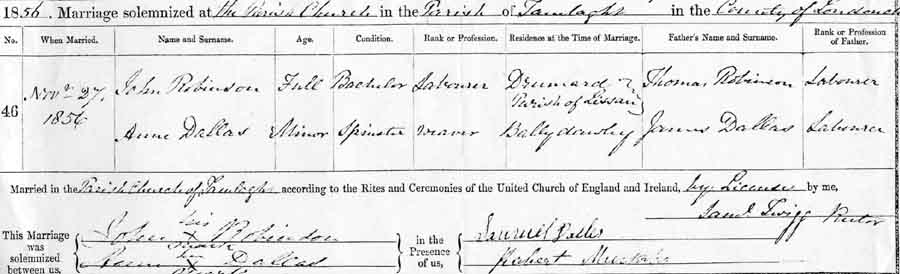 1856. Marriage solemnized at the Parish Church in the Parish of Tamlaght in the County of
No. When Married. Name and Surname. Age. Condition. Rank or Profession. Residence at the Time of Marriage. Father's Name and Surname. Rank or Profession of Father.
46 Novr 27 1856
John Robinson Full Bachelor Labourer Drumard Parish of Lissan Thomas Robinson Labourer
Anne Dallas Minor Spinster Weaver James Dallas Labourer
Married in the Parish Church of Tamlaght according to the Rites and Ceremonies of the United Church of England and Ireland, by License by me,
Saml Twigg Rector
This Marriage was solemnized between us,
John his X mark Robinson
Dallas
in the Presence of us,
Samuel
Robert